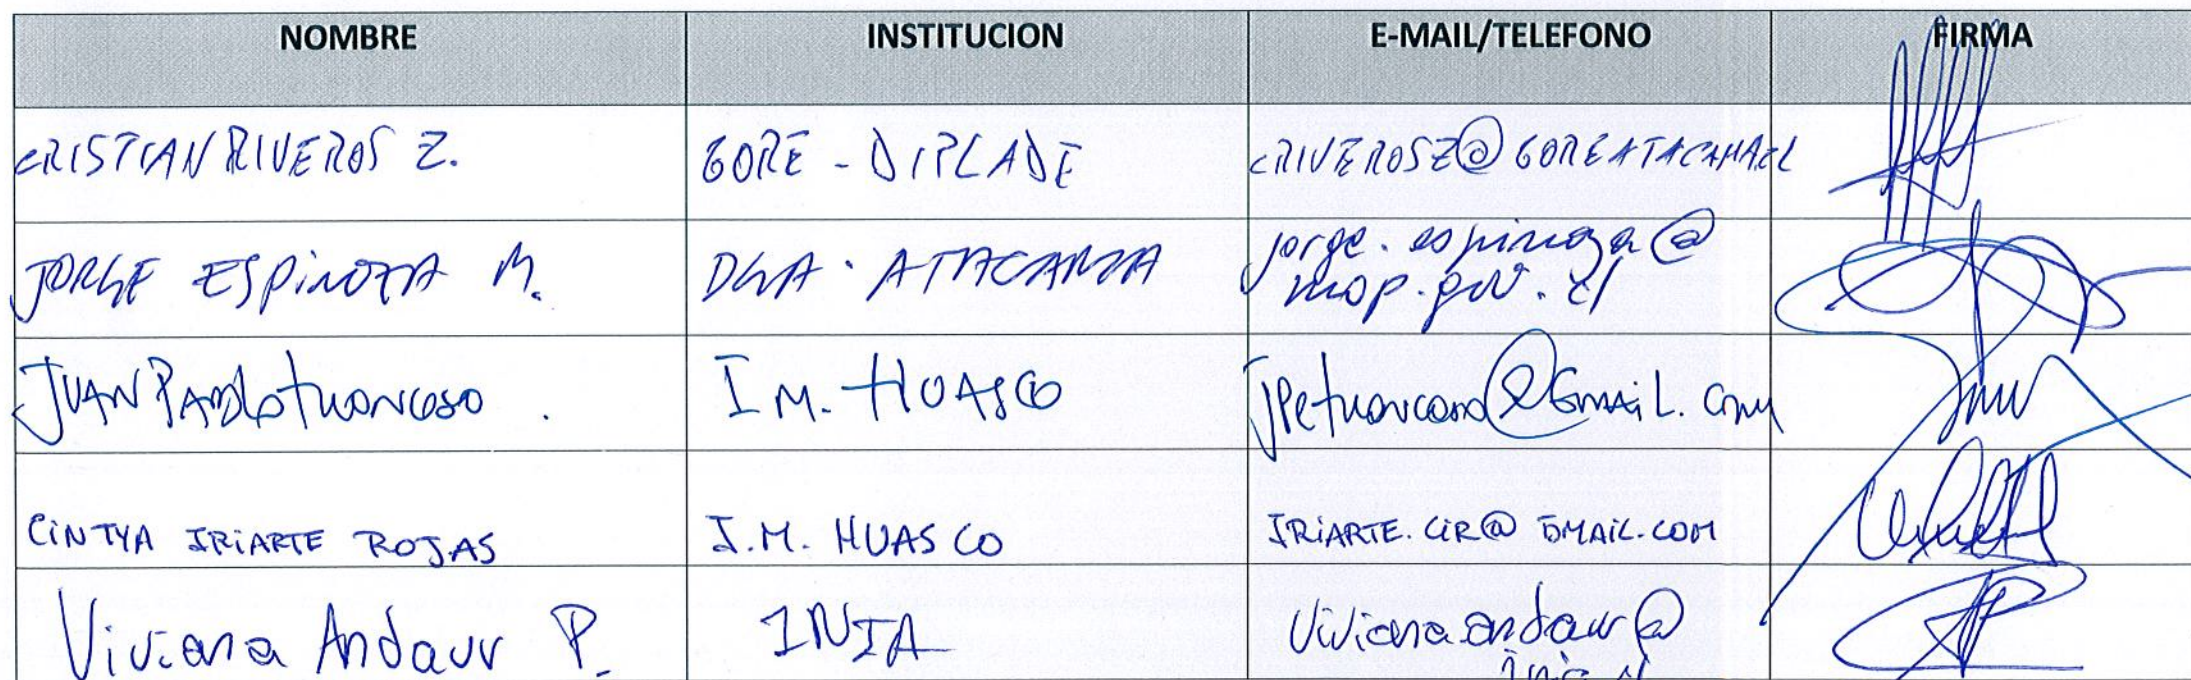 NOMBRE INSTITUCION E-MAIL/TELEFONO FIRMA
CRISTIAN RIVEROS Z. GORE - DIPLADE CRIVEROSZ@GOREATACAMA.CL
JORGE ESPINOZA M. DGA. ATACAMA jorge.espinoza@
mop.gov.cl
JUAN PABLO I.M. HUASCO @Gmail.com
CINTYA IRIARTE ROJAS I.M. HUASCO IRIARTE.CIR@GMAIL.COM
Viviana Andaur P. INIA Viviana.andaur@
inia.cl